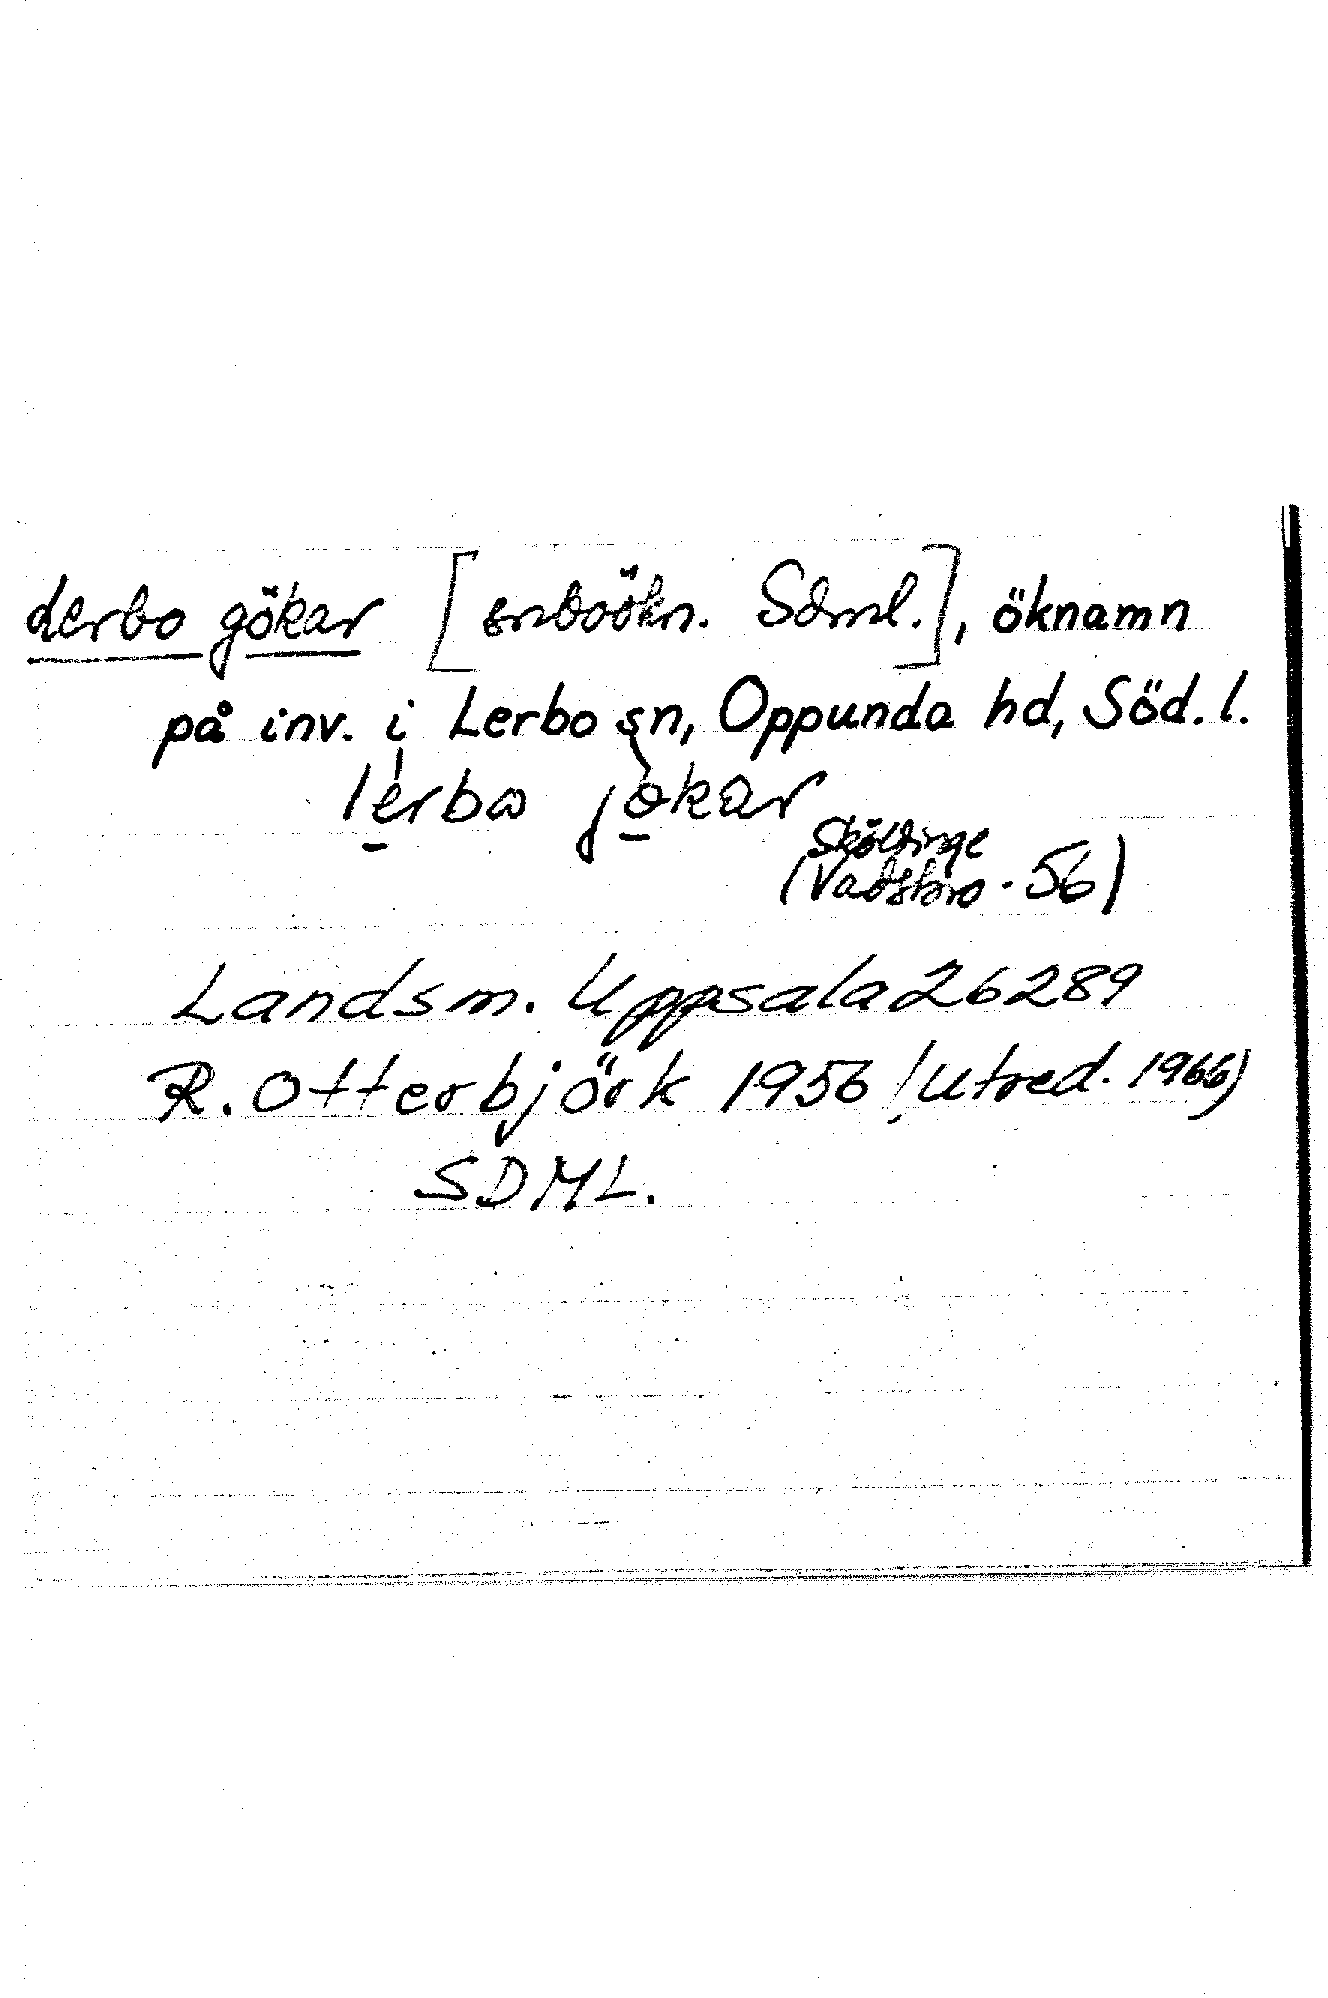 Lerbo gökar [snboökn. Sdml.], öknamn
på inv. i Lerbo sn, Oppunda hd, Söd. l.
lerbω jøkar
Sköldinge
(Vadsbro - 56)
Landsm. Uppsala 26289
R. Otterbjörk 1956 (Utred. 1966)
SDML.